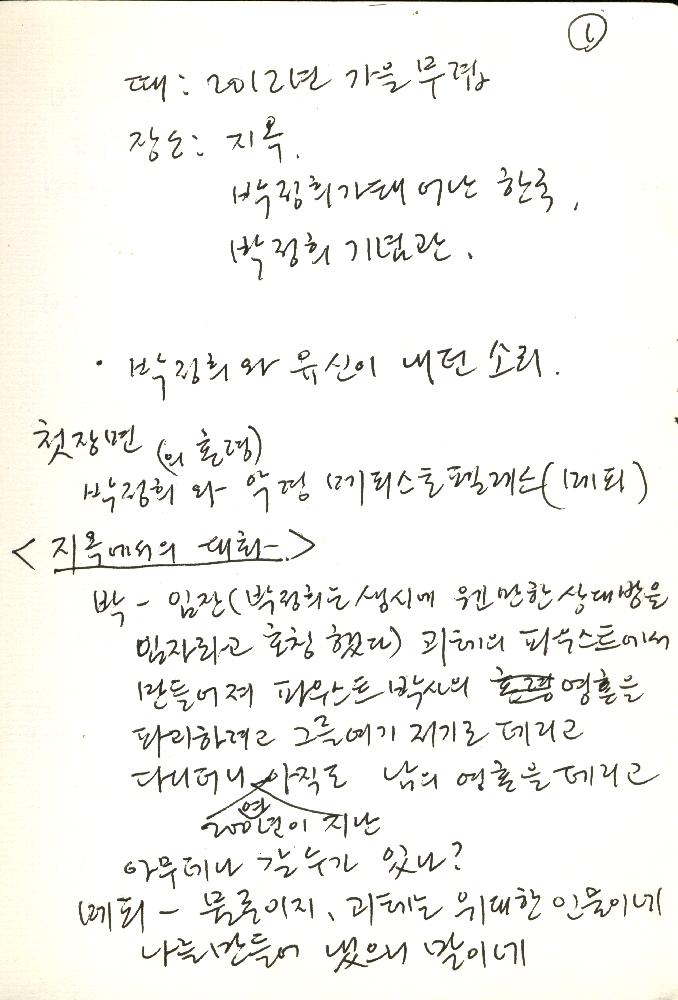 1
때: 2012년 가을무렵
장소: 지옥.
박정희가 태어난 한국.
박정희 기념관.
· 박정희와 유신이 내던 소리.
첫장면 (의 혼령)
박정희 와 악령 메피스토펠레스(메피)
<지옥에서의 대화->
박 - 임잔(박정희는 생시에 웬만한 상대방을
임자라고 호칭 했다) 괴테의 파우스트에서
만들어져 파우스트 박사의 영혼을
파리하려고 그를 여기 저기로 데리고
다니더니 아직도 남의 영혼을 데리고
200여년이 지난
아무데나 갈 수가 있나?
메피 - 물론이지, 괴테는 위대한 인물이네
나를 만들어 냈으니 말이네